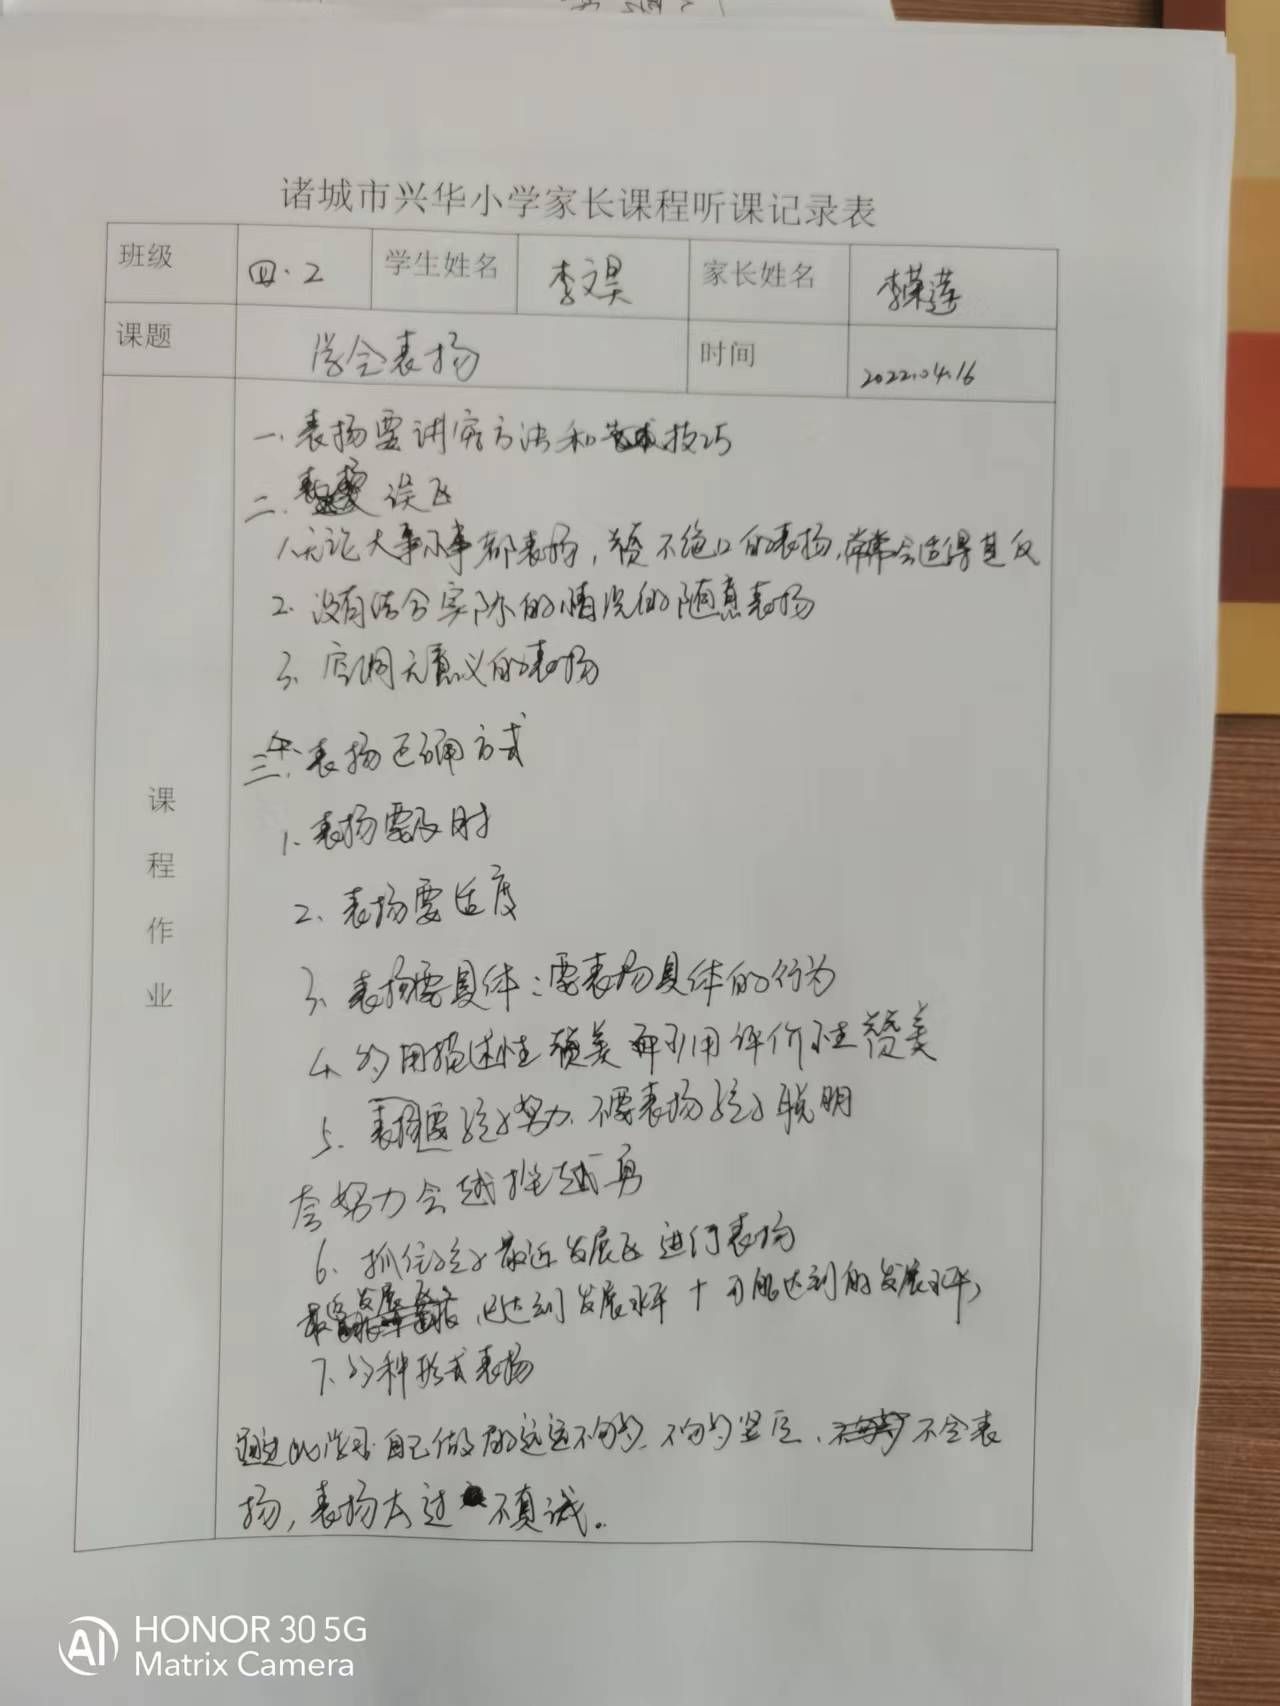 诸城市兴华小学家长课程听课记录表
班级 四.2 学生姓名 李文昊 家长姓名 李荣莲
课题 学会表扬 时间 2022.04.16
课程作业
一、表扬要讲究方法和技巧
二、误区
1.无论大事小事都表扬，赞不绝口的表扬，常常会适得其反
2、没有结合实际的情况的随意表扬
3、空洞无意义的表扬
三、表扬正确方式
1、表扬要及时
2、表扬要适度
3、表扬要具体：要表扬具体的行为
4、多用描述性赞美 再引用评价性赞美
5、表扬要孩子努力、不要表扬孩子聪明
夸努力会越挫越勇
6、抓住孩子最近发展区进行表扬
已达到发展水平＋可能达到的发展水平
7、多种形式表扬
通过此学习自己做的远远不够、不够坚定、不会表
扬，表扬太过 不真诚。
HONOR 30 5G
Matrix Camera
AI